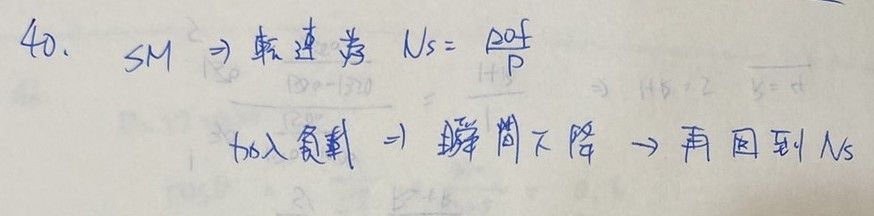 40. SM ⇒ 轉速為 Ns = 120f/P
加入負載 ⇒ 瞬間下降 → 再回到 Ns